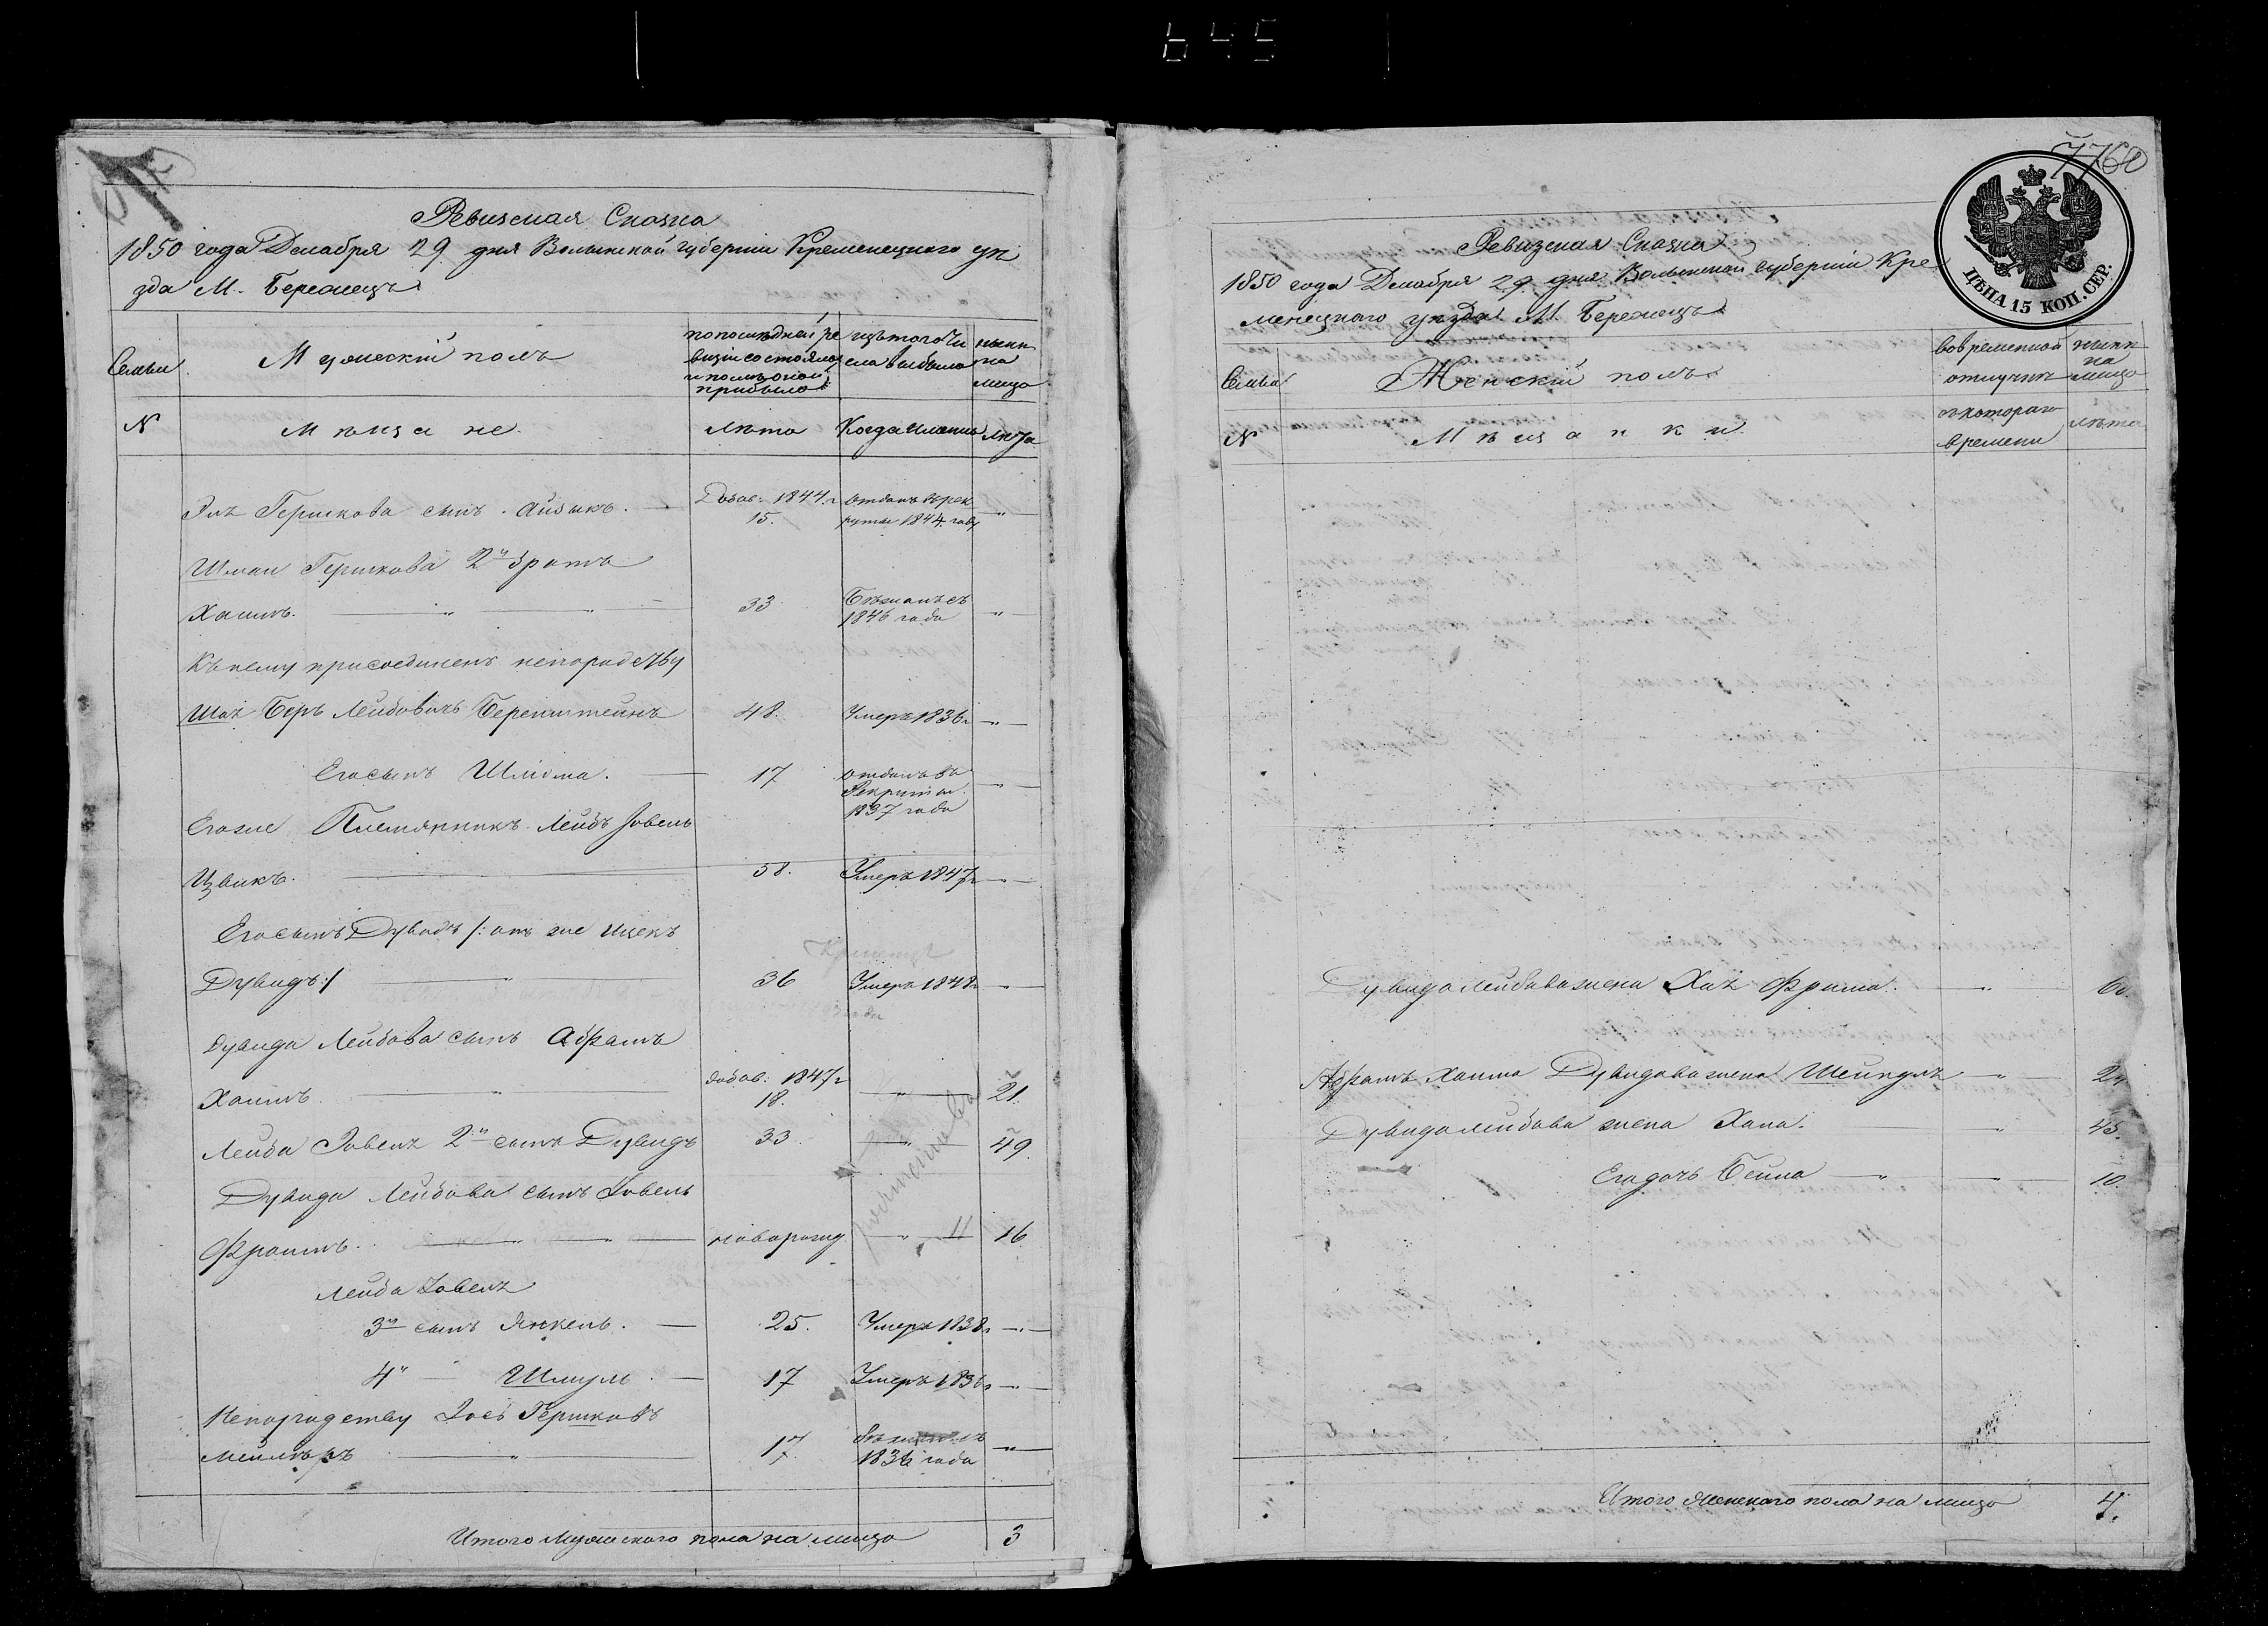 645
Ревизская Сказка
1850 года Декабря 29 дня Волынской губернии Кременецкого уѣ
зда М. Бережецъ
Семьи Мужеский полъ по последней ре визіи состояло и послѣ оной прибыло изъ того чи сла выбыло нынѣ на лицо
N Мѣщане Лѣта Когда именно Лѣта
Эль Гершкова сынъ Айзыкъ. Добав: 1844 г 15. отданъ въ рек руты 1844 году "
Шмаи Гершкова 2й братъ
Хаимъ. " " 33 Бѣжалъ съ 1846 года "
Къ нему присоединенъ непородству
Шаъ Беръ Лейбовичъ Беренштейнъ 48. Умеръ 1836 г "
Его сынъ Шліома. 17 отданъ въ Рекруты 1837 года "
Его же Племянникъ Лейбъ Іовель
Цвикъ. 58. Умеръ 1847 г "
Его сынъ Дувидъ /: онъ же Ицекъ
Дувидъ:/ " 36 Умеръ 1848 г "
Дувида Лейбова сынъ Абрамъ
Хаимъ. " добав: 1847 г 18. " 21.
Лейба Іовеля 2й сынъ Дувидъ 33. " 49.
Дувида Лейбова сынъ Іовель
Фроимъ. " " новорожд. " 16
Лейба Іовеля
3й сынъ Янкель. 25. Умеръ 1838 г "
4" Шмуль. 17 Умеръ 1836 г "
Непородству Іосъ Гершковъ
Мейлеръ " 17. 1836 года "
Итого Мужеского пола на лицо 3
7760
ЦѢНА 15 КОП. СЕР.
Ревизская Сказка
1850 года Декабря 29 дня Волынской губерніи Кре
менецкого уѣзда М. Бережецъ
Семьи Женскій полъ во временной отлучкѣ нынѣ на лицо
N Мѣщанки съ котораго времени лѣта
Дувида Лейбова жена Хая Фрима. " 60.
Абрамъ Хаима Дувидова жена Шейндля " 24
Дувида Лейбова жена Хана. " 45.
Его дочь Бейла " " 10.
Итого Женского пола на лицо 4.